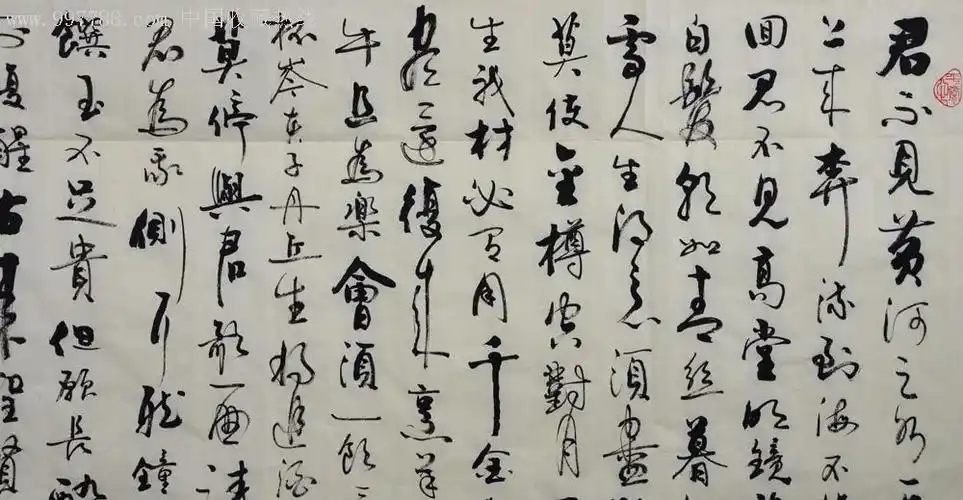 www.997788.com 中国收藏热线
君不見黄河之水
上来奔流到海不
回君不見高堂明鏡
白髮朝如青丝暮
雪人生得意須盡
莫使金樽空對月
生我材必有用千金
盡還復来烹羊
牛且為樂會須一飲三
杯岑夫子丹丘生将進酒
莫停與君歌一曲請
君為我側耳聽鐘
饌玉不足貴但願長醉
不復醒古来聖賢